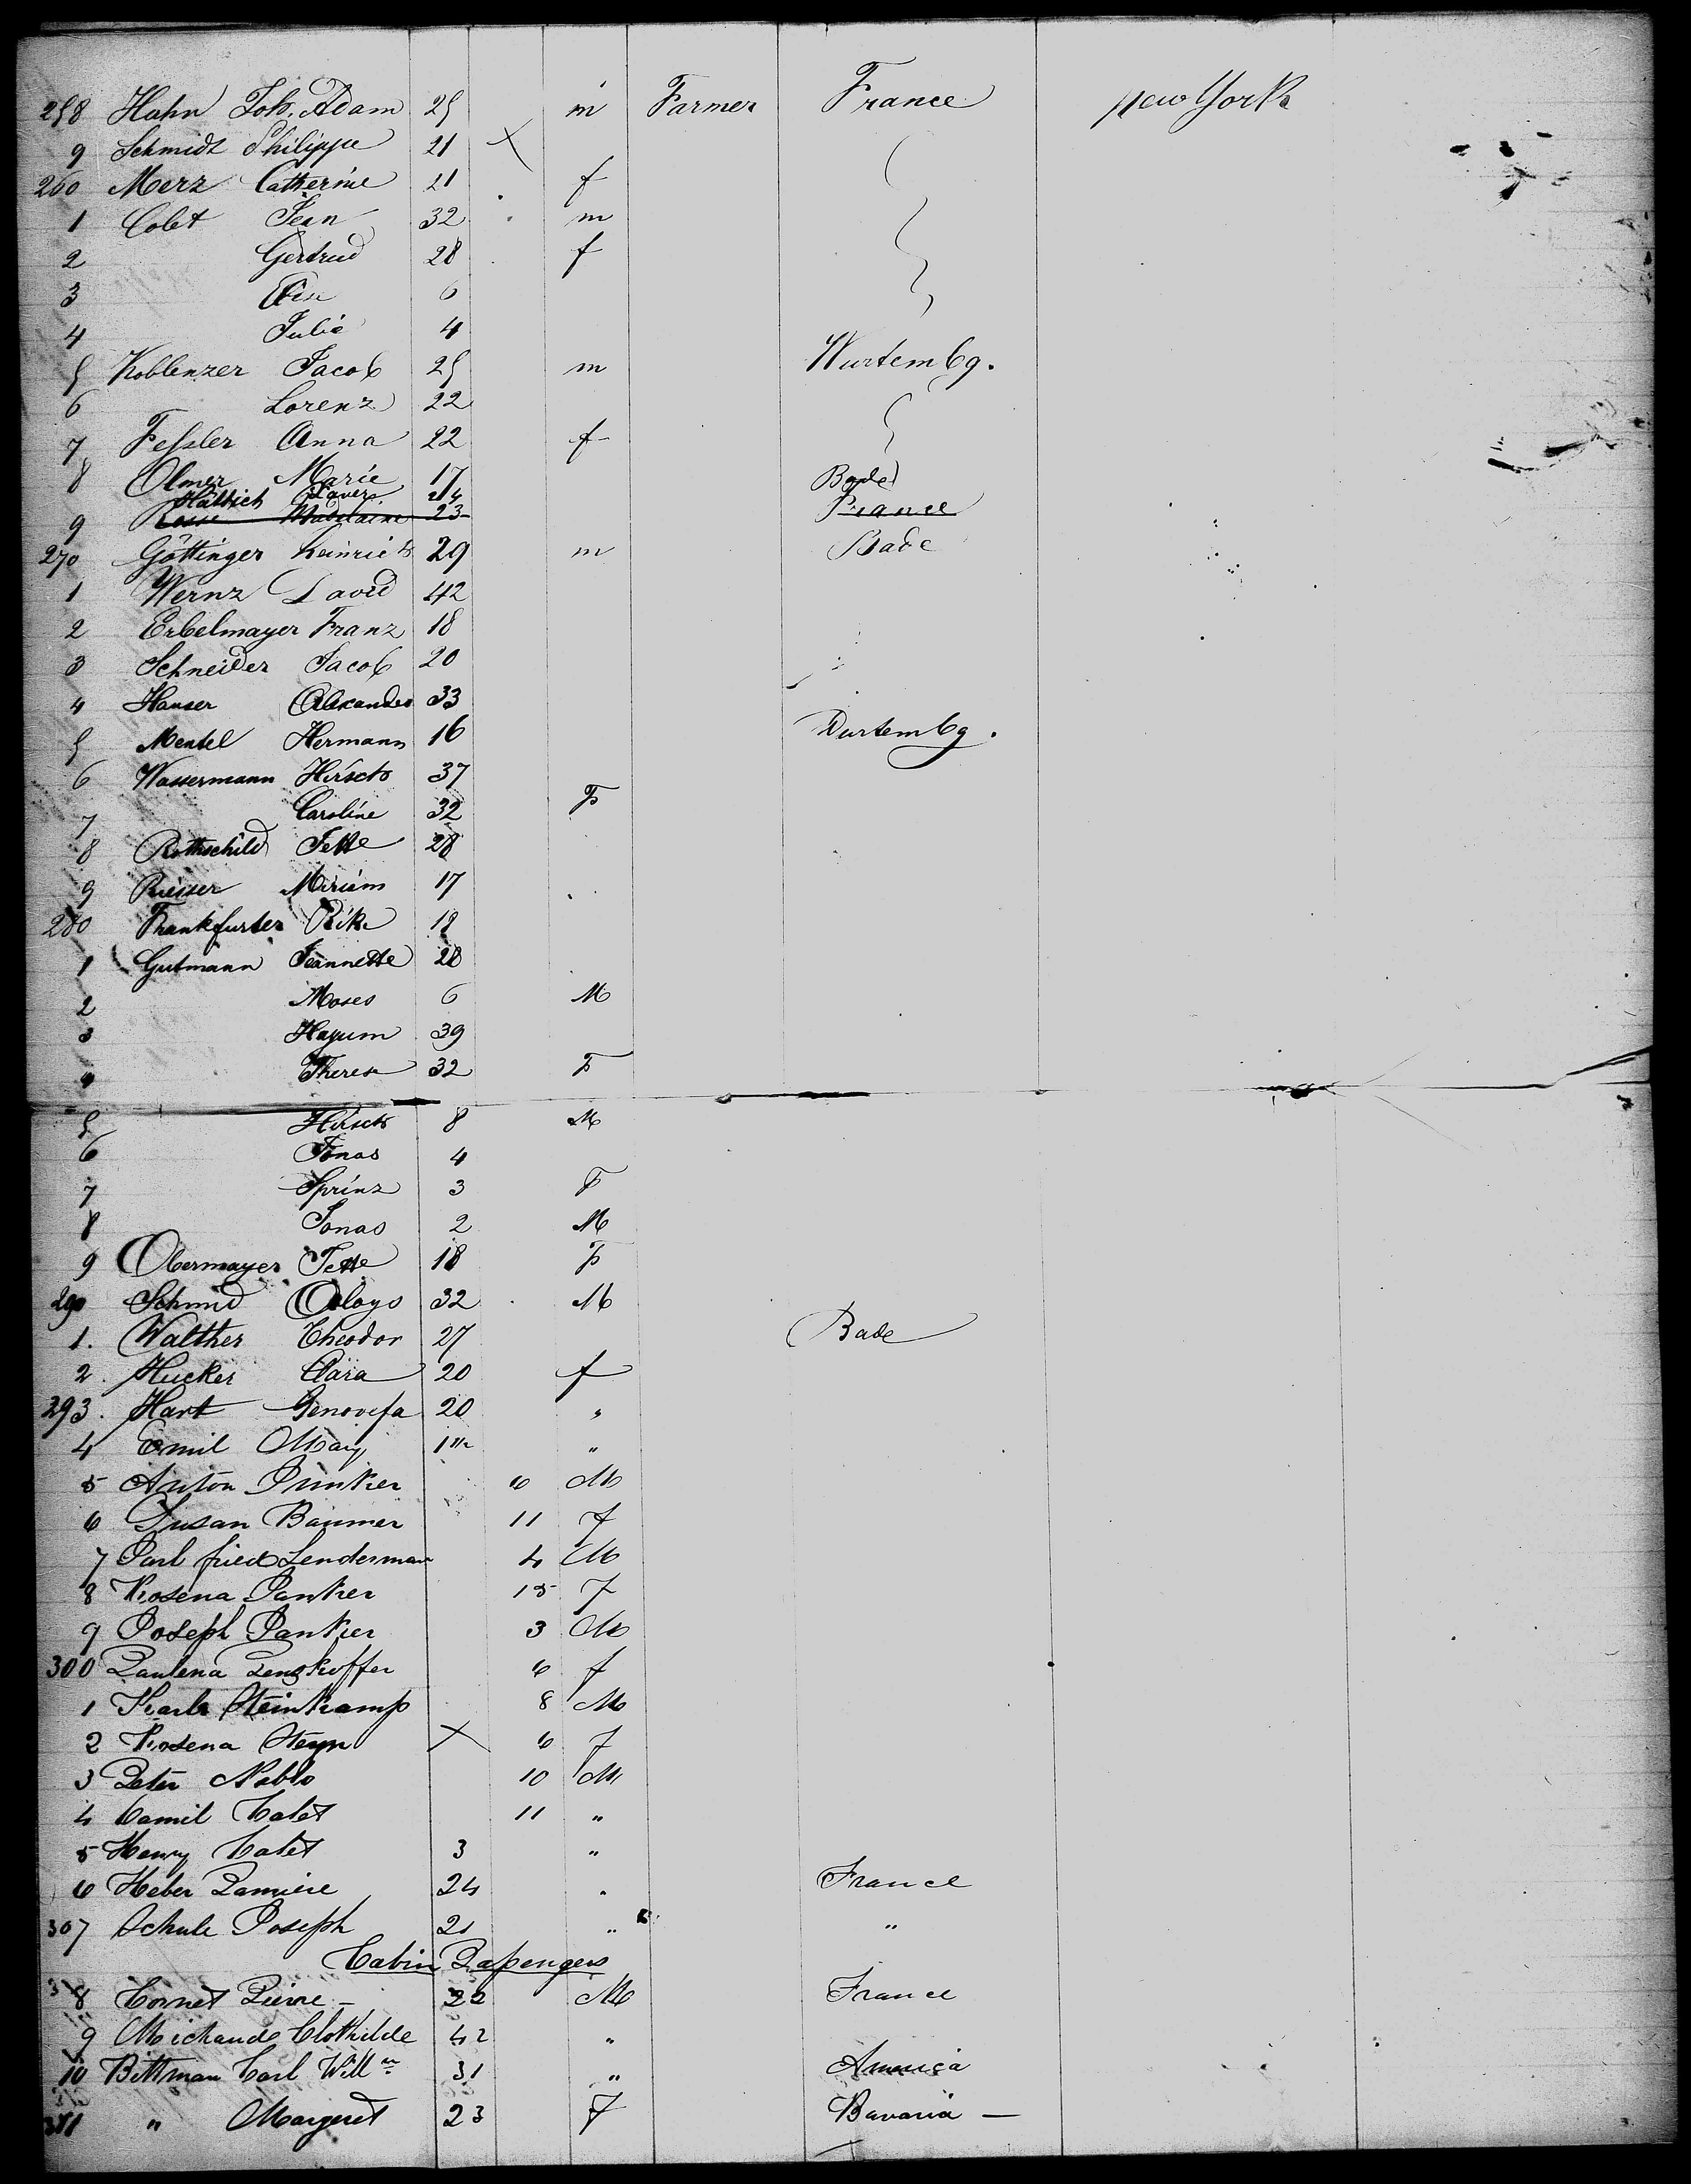 258 Hahn Joh. Adam 25 m Farmer France new York
9 Schmidt Philippe 21
260 Merz Catherine 21 f
1 Colet Jean 32 m
2 Gertrud 28 f
3 Elise 6
4 Julie 4
5 Koblenzer Jacob 25 m Wurtembg.
6 Lorenz 22
7 Feßler Anna 22 f
8 Olmer Marie 17 Bade
Hättich Xaver 24
9 Rosse Madelaine 23 France
270 Göttinger heinrich 29 m Bade
1 Wernz David 42
2 Erbelmayer Franz 18
3 Schneider Jacob 20
4 Hauser Alexander 33
5 Mentel Hermann 16 Wurtembg.
6 Wassermann Hirsch 37
7 Caroline 32 F
8 Rothschild Jette 28
9 Riesser Miriam 17
280 Frankfurter Rike 18
1 Gutmann Jeannette 28
2 Moses 6 M
3 Hayum 39
4 Therese 32 F
5 Hirsch 8 M
6 Jonas 4
7 Sprinz 3 F
8 Jonas 2 M
9 Obermayer Jette 18 F
290 Schmid Aloys 32 M
1. Walther Theodor 27 Bade
2. Hucker Clara 20 f
293. Hart Genovefa 20 "
4 Emil May "
5 Anton 6 M
6 Susan Baumer 11 F
7 Carl fried Lenderman 4 M
8 Rosena Panker 15 F
9 Joseph Panker 3 M
300 Paulena 6 f
1 Karl Steinkamp 8 M
2 Rosena Steyn 6 F
3 Peter Noblo 10 M
4 Camil Calet 11 "
5 Henry Calet 3 "
6 Heber 24 " France
307 Schule Joseph 21 " "
Cabin Paßengers
8 Cornet Pierre 22 M France
9 Michaude Clothilde 42 "
10 Bittman Carl Willm 31 " America
311 " Margeret 23 F Bavaria